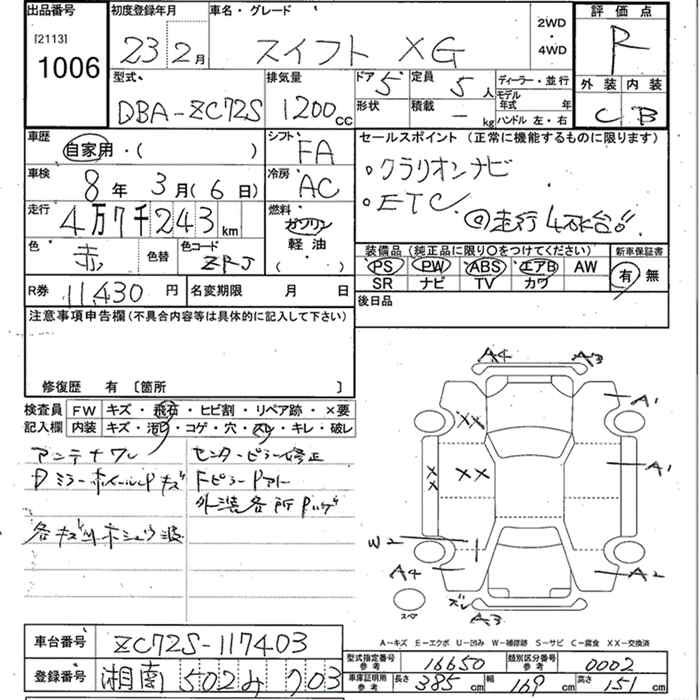 出品番号
[2113]
1006
初度登録年月
23年2月
車名・グレード
スイフト XG
2WD
・
4WD
評価点
R
外装 内装
C B
型式
DBA-ZC72S
排気量
1200cc
ドア 5
定員 5人
形状
積載 - kg
ディーラー・並行
モデル年式 年
ハンドル 左・右
車歴
自家用・( )
シフト
FA
セールスポイント (正常に機能するものに限ります)
・クラリオンナビ
・ETC
◎走行4万K台!!
車検
8年 3月(6日)
冷房
AC
走行
4万7千243km
燃料
ガソリン
軽油
( )
色
赤
色替
色コード
ZPJ
装備品 (純正品に限り○をつけてください)
PS PW ABS エアB AW
SR ナビ TV カワ
新車保証書
有 無
R券 11,430円
名変期限 月 日
後日品
注意事項申告欄 (不具合内容等は具体的に記入して下さい)
修復歴 有 〔箇所 〕
検査員記入欄
FW キズ・飛石・ヒビ割・リペア跡・×要
内装 キズ・汚れ・コゲ・穴・スレ・キレ・破レ
アンテナワレ
Dミラーホイールキャップキズ
各キズ
センターピラー修正
Fピラー
外装各所
A4 A3
A1
XX
A1
XX
XX
W2
A4
A2
ズレ
A3
スペ
A-キズ E-エクボ U-凹み W-補修跡 S-サビ C-腐食 XX-交換済
車台番号
ZC72S-117403
登録番号
湘南 502 み 703
型式指定番号 参考
16650
類別区分番号 参考
0002
車庫証明用 参考
長さ 385cm 幅 169cm 高さ 151cm